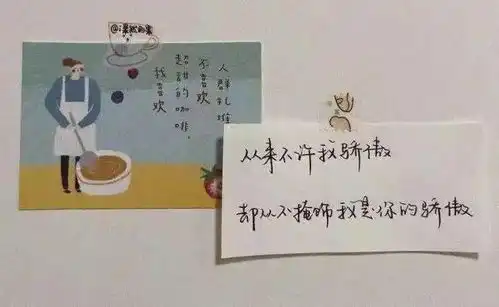 @潆然的素
人群扎堆
不喜欢
超甜的咖啡，
我喜欢
从来不许我骄傲
却从不掩饰我是你的骄傲